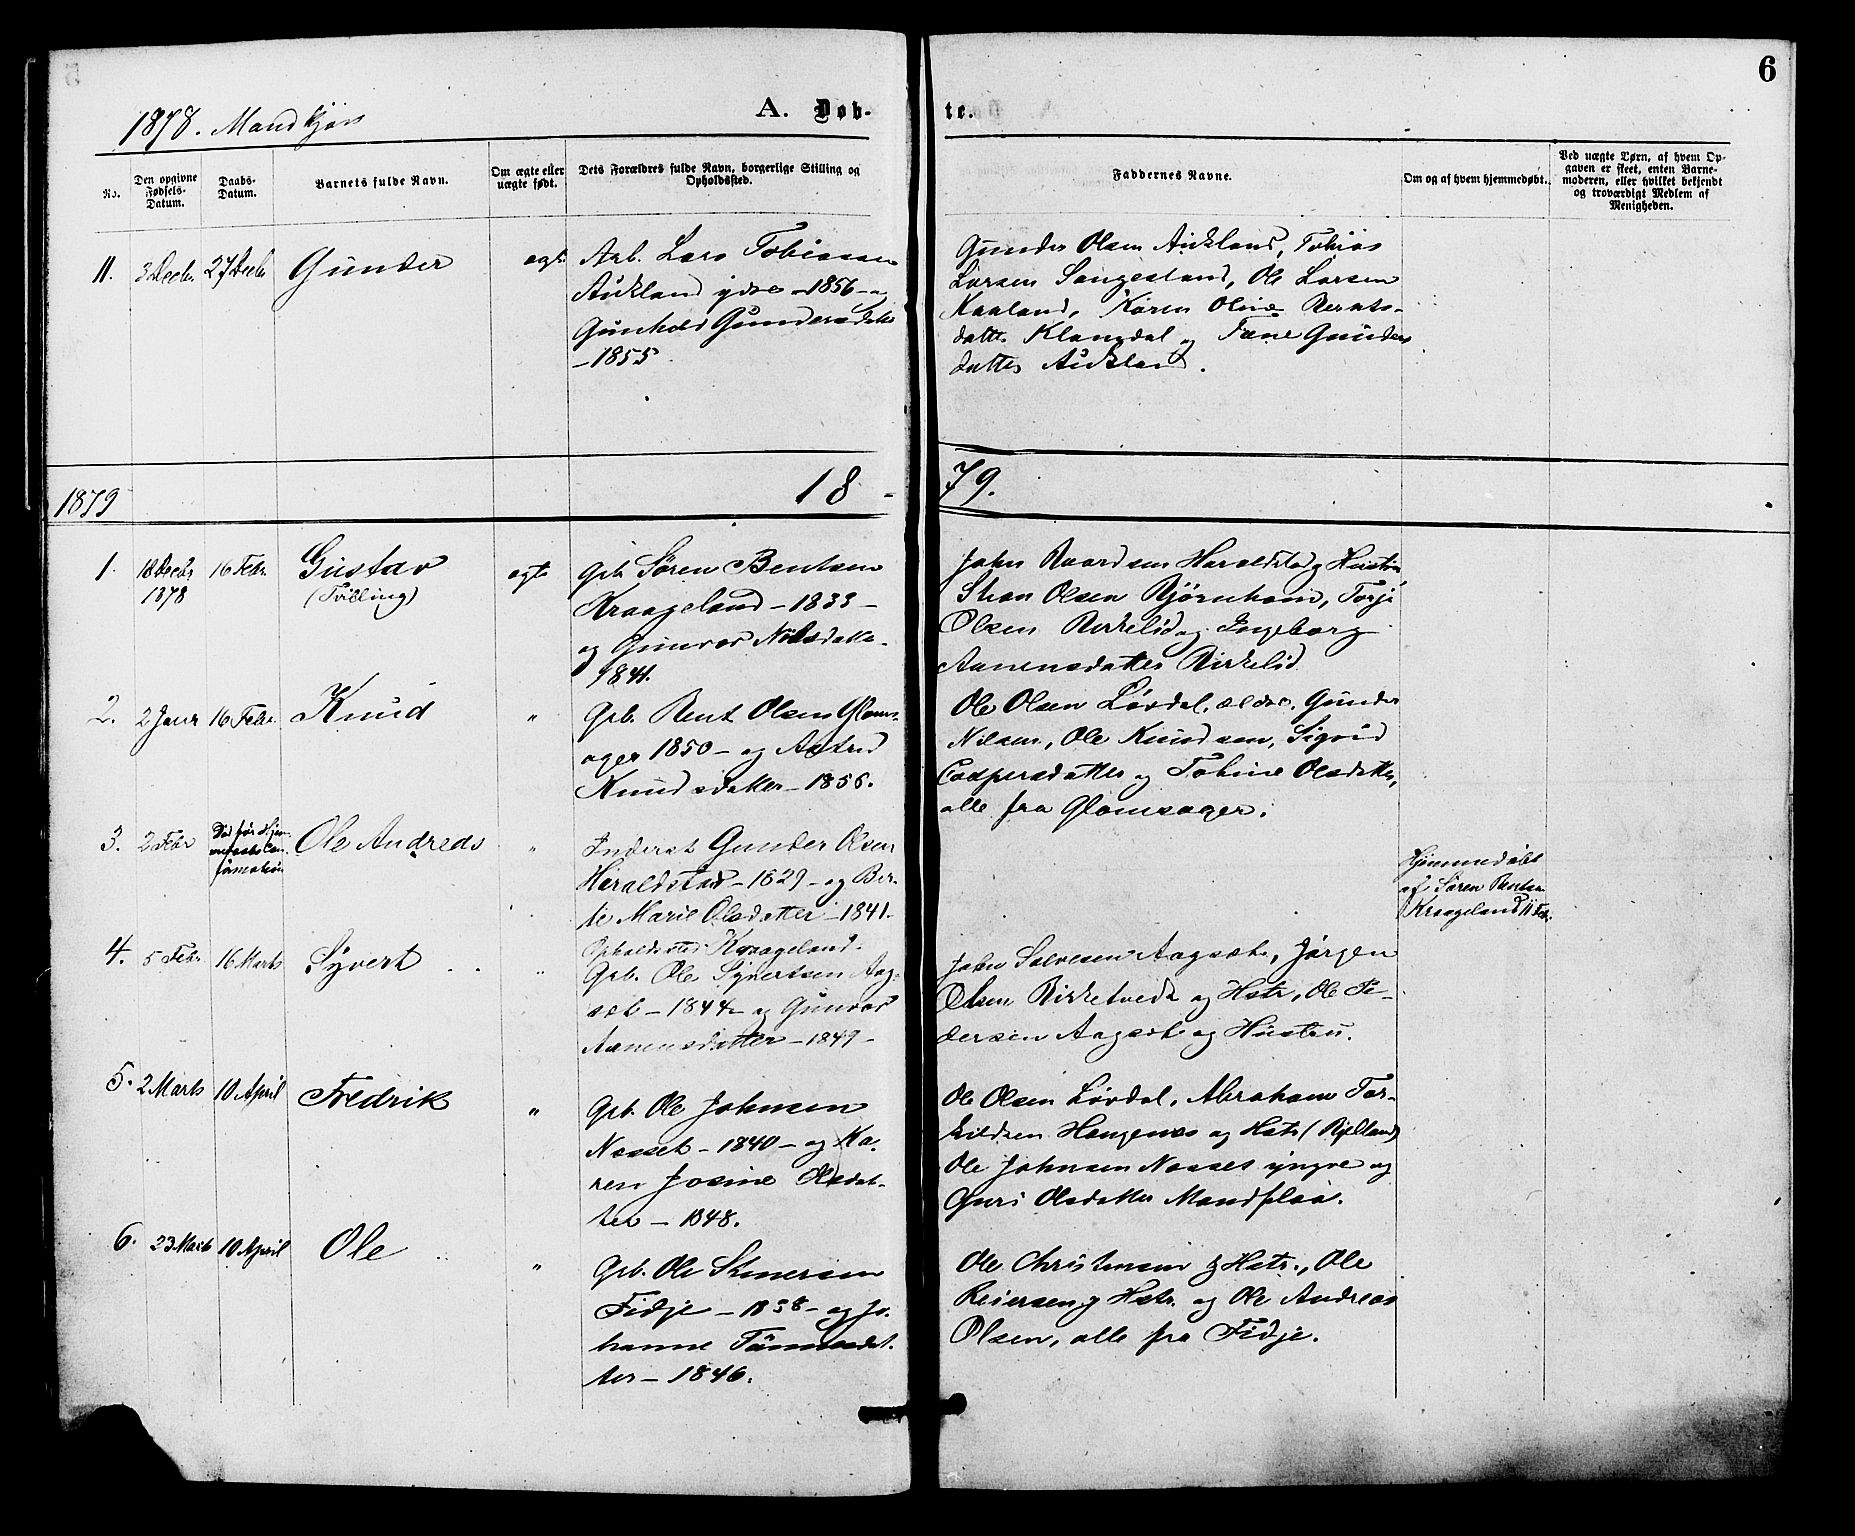 6
1878. Mandkjøn
A. Døb-
te.
No.
Den opgivne Fødsels-Datum.
Daabs-Datum.
Barnets fulde Navn.
Om ægte eller uægte født.
Dets Forældres fulde Navn, borgerlige Stilling og Opholdssted.
Faddernes Navne.
Om og af hvem hjemmedøbt.
Ved uægte Børn, af hvem Opgaven er skeet, enten Barnemoderen, eller hvilket bekjendt og troværdigt Medlem af Menigheden.
11. 3 Decbr. 27 Decbr Gunder ægte
Arb. Lars Tobiassen
Aukland ydre - 1856 - og
Gunhold Gundersdatter
- 1855.
Gunder Olsen Aukland, Tobias
Larsen Sangesland, Ole Larsen
Kaaland, Karen Oline Bernts-
datter Klamdal og Tone Gunders
datter Aukland.
1879
18 -
79.
1. 18 Decbr 1878 16 Febr. Gustav (Tvilling) ægte
Gbr. Søren Bentsen
Kraageland - 1833 -
og Gunvor Nilsdatter
1841.
John Baardsen Haraldstad og Hustru
Stian Olsen Bjørnham, Torje
Olsen Birkelid og Ingeborg
Aanensdatter Birkelid
2. 2 Janr 16 Febr. Knud "
Gbr. Bent Olsen Gloms-
ager 1850 - og Astrid
Knudsdatter - 1856.
Ole Olsen Løvdal, ældre, Gunder
Nilsen, Ole Knudsen, Sigrid
Caspersdatter og Tobine Olsdatter,
alle fra Glomsager.
3. 2 Febr Død før Hjem-
medaabs Con-
firmation Ole Andreas "
Inderst Gunder Olsen
Haraldstad - 1829 - og Ber-
te Marie Olsdatter - 1841.
Opholdssted Kraageland.
Hjemmedøbt
af Søren Bentsen
Kraageland 11 Feb.
4. 5 Febr. 16 Marts Syvert "
Gbr. Ole Syvertsen Aag-
sæt - 1844 - og Gunvor
Aanensdatter - 1849 -
John Salvesen Aagsæt, Jørgen
Olsen Birketvedt og Hstr, Ole Pe-
dersen Aagsæt og Hustru.
5. 2 Marts 10 April Fredrik "
Gbr. Ole Johnsen
Nosset - 1840 - og Ka-
ren Josine Olsdat-
ter - 1848.
Ole Olsen Løvdal, Abraham Tor-
kildsen Haugenes og Hstr (Bjelland)
Ole Johnsen Nosset yngre og
Guri Olsdatter Mandflaa.
6. 23 Marts 10 April Ole "
Gbr. Ole Stenersen
Fidje - 1838 - og Jo-
hanne Tønnesdat-
ter - 1846.
Ole Christensen & Hstr., Ole
Reiersen & Hstr. og Ole Andreas
Olsen, alle fra Fidje.